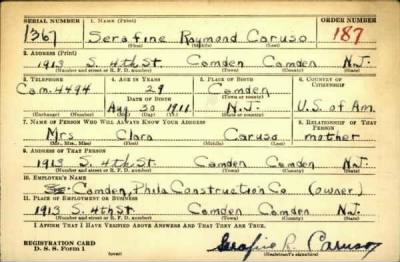 SERIAL NUMBER 1. NAME (Print) ORDER NUMBER
1367 Serafine Raymond Caruso 187
(First) (Middle) (Last)
2. ADDRESS (Print)
1913 S. 4th St. Camden Camden N.J.
(Number and street or R. F. D. number) (Town) (County) (State)
3. TELEPHONE 4. AGE IN YEARS 5. PLACE OF BIRTH 6. COUNTRY OF CITIZENSHIP
Cam. 4494 29 Camden
DATE OF BIRTH (Town or county)
Aug 30 1911 N.J. U.S. of Am.
(Exchange) (Number) (Mo.) (Day) (Yr.) (State or country)
7. NAME OF PERSON WHO WILL ALWAYS KNOW YOUR ADDRESS 8. RELATIONSHIP OF THAT PERSON
Mrs Clara Caruso mother
(Mr., Mrs., Miss) (First) (Middle) (Last)
9. ADDRESS OF THAT PERSON
1913 S. 4th St. Camden Camden N.J.
(Number and street or R. F. D. number) (Town) (County) (State)
10. EMPLOYER'S NAME
Camden, Phila Construction Co (owner)
11. PLACE OF EMPLOYMENT OR BUSINESS
1913 S. 4th St Camden Camden N.J.
(Number and street or R. F. D. number) (Town) (County) (State)
I AFFIRM THAT I HAVE VERIFIED ABOVE ANSWERS AND THAT THEY ARE TRUE.
REGISTRATION CARD
D. S. S. Form 1 (over) Serafine R. Caruso
(Registrant's signature)